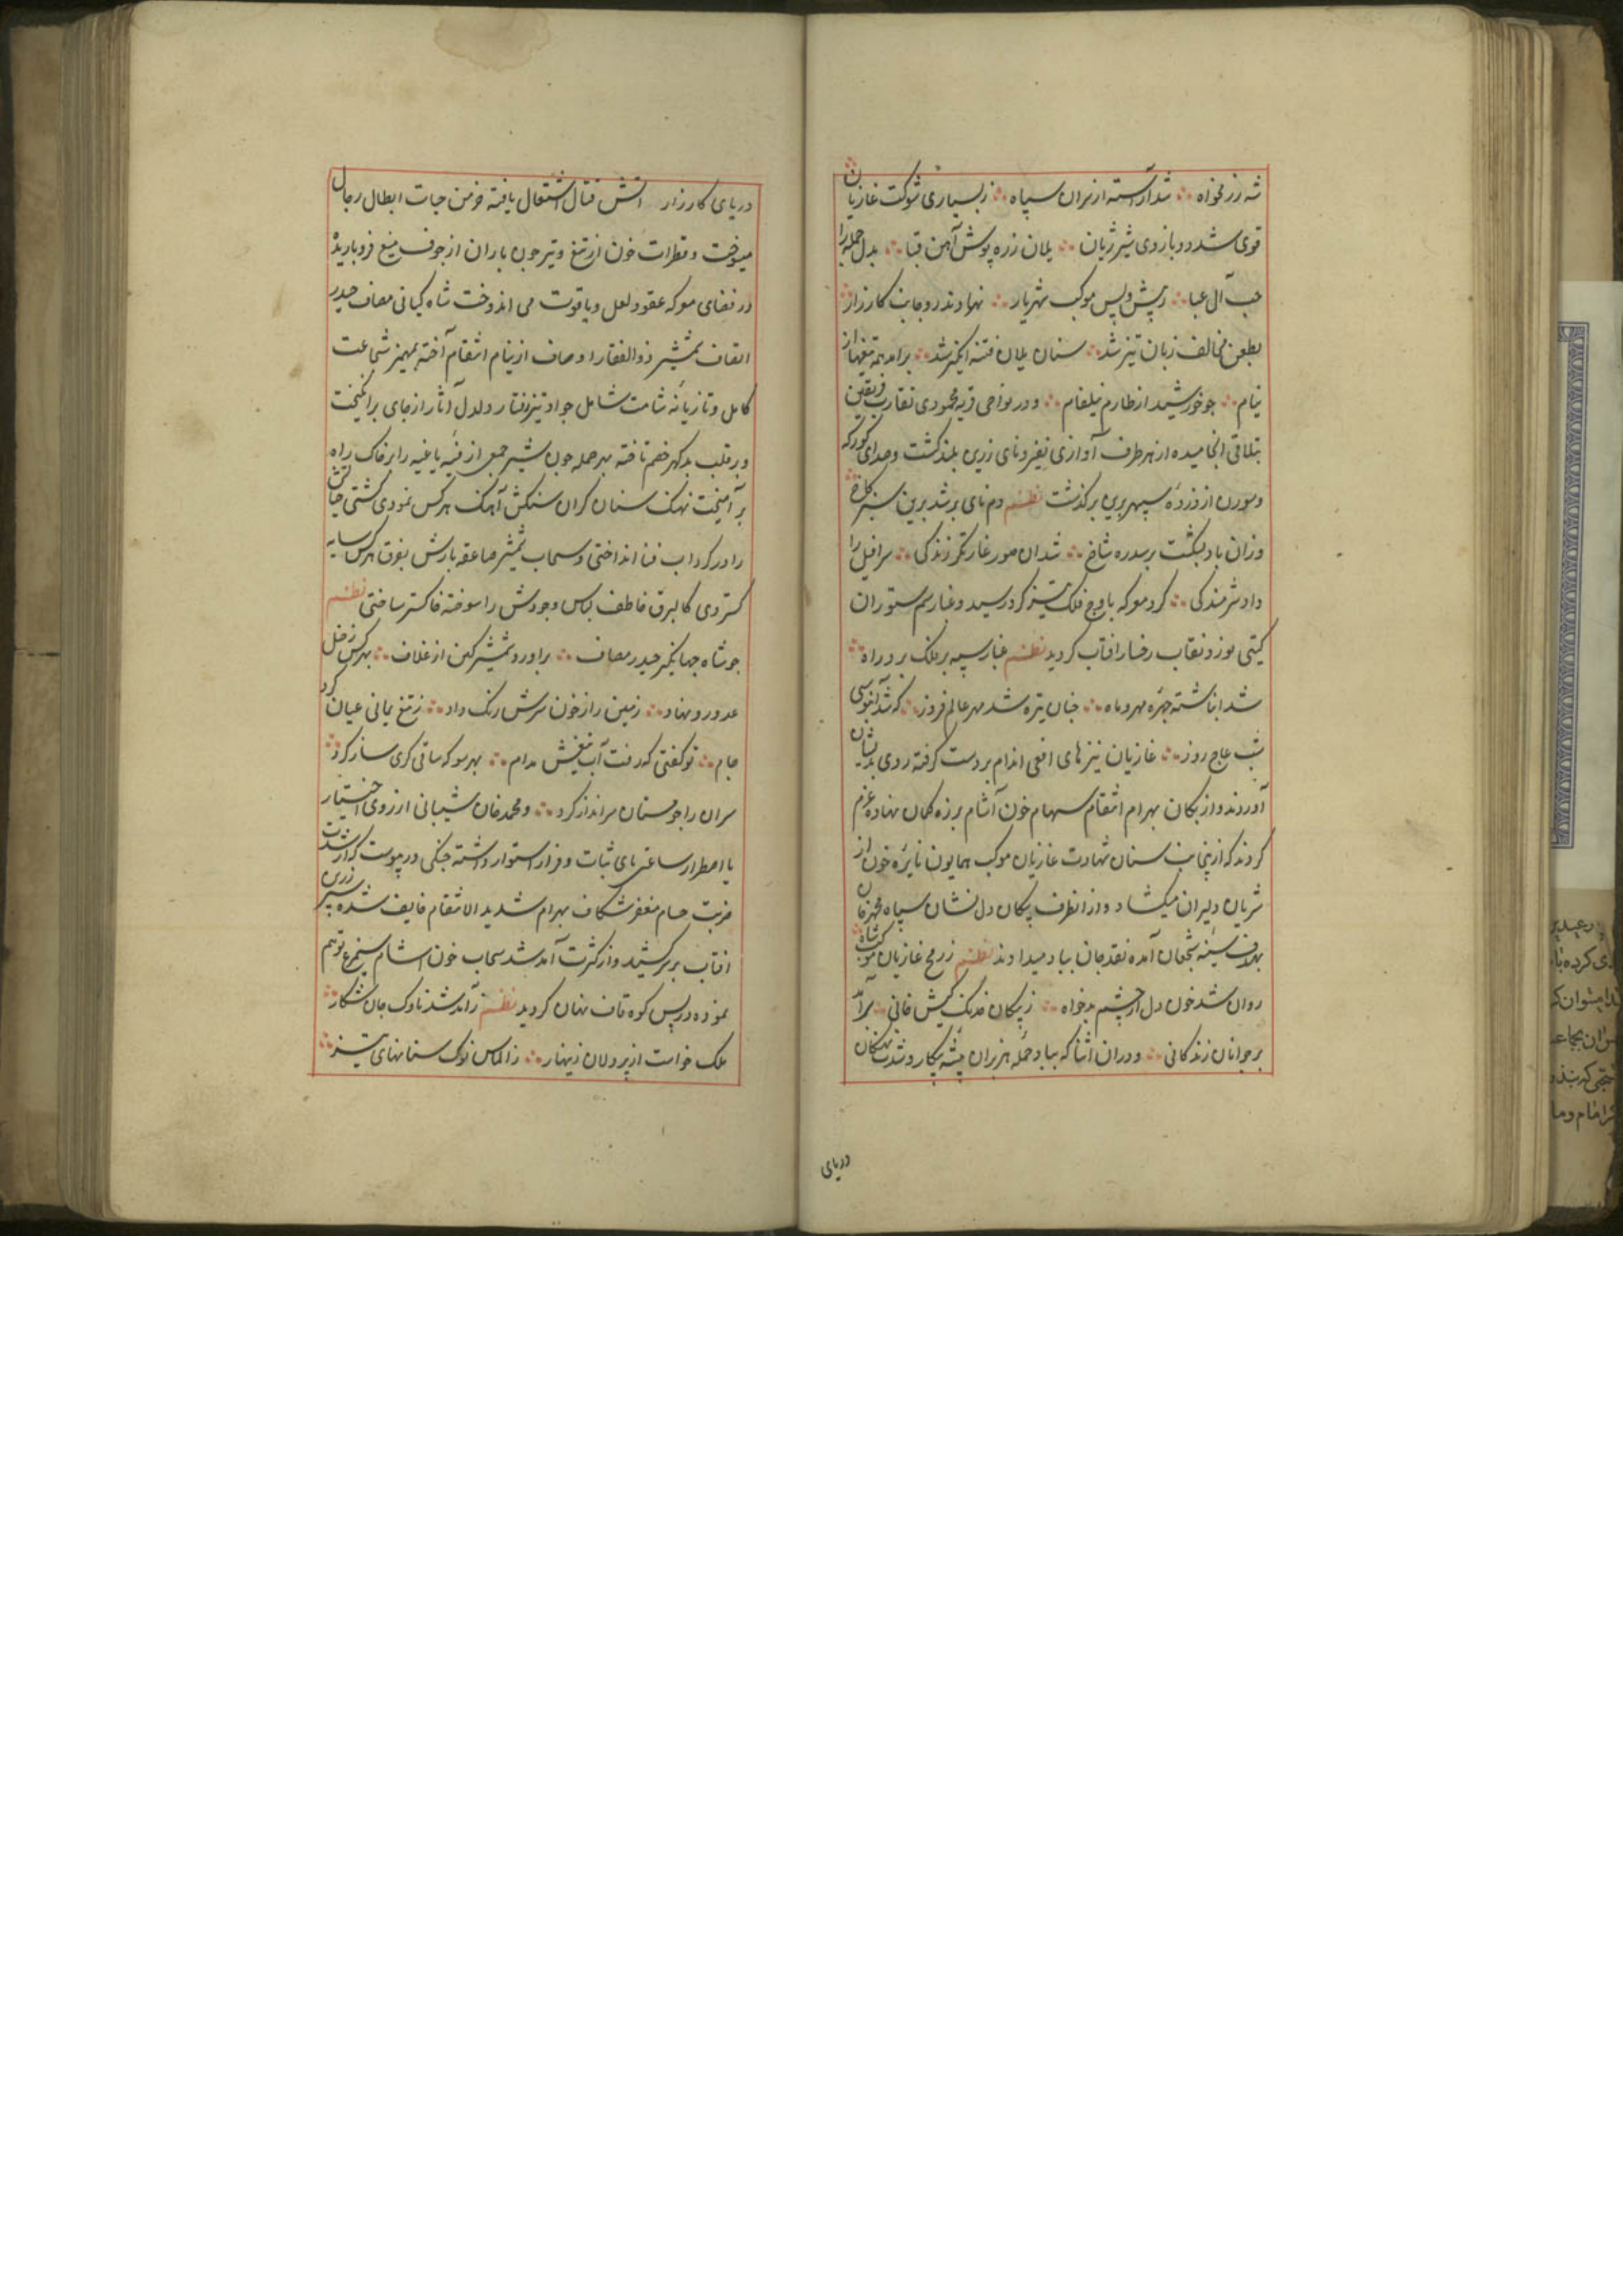 شه رزمخواه ∴ شد آراسته از نران سپاه ∴ زبسیاری شوکت غازیان
قوی شد دو بازوی شیر ژیان ∴ یلان زره پوش آهن قبا ∴ بدل جمله را
حب آل عبا ∴ زپیش و پس موکب شهریار ∴ نهادند رو جانب کارزار
بطعن مخالف زبان تیز شد ∴ سنان یلان فتنه انگیز شد ∴ برامد همه تیغها از
نیام ∴ چو خورشید از طارم نیلفام ∴ و در نواحی قریه محمودی تقارب فریقین
بتلاقی انجامیده از هر طرف آوازی نفیر و نای زرین بلند کشت و صدای کورکه
و سورن از ذروه سپهر برین برکذشت نظم دم نای بر شد برین سبز کاخ
وزان باد بشکست بر سدره شاخ ∴ شد ان صور غارتگر زندکی ∴ سرافیل را
داد شرمندکی ∴ کرد معرکه باوج فلک تیز کرد رسید و غبار سم ستوران
کیتی نورد نقاب رخسار افتاب کردید نظم غبار سپه بر ملک برد راه
شد انباشته چهره مهر و ماه ∴ چنان تیره شد مهر عالم فروز ∴ که شد آبنوسی
شب عاج روز ∴ غازیان نیزهای افعی اندام بر دست کرفته روی بدیشان
آوردند و ازبکان بهرام انتقام سهام خون آشام بر زه کمان نهاده عزم
کردند که ازینجانب سنان شهادت غازیان موکب همایون نایره خون از
شریان دلیران میکشاد و از انطرف پیکان دل نشان سپاه محمد خان
بهدف سینه شجعان آمده نقد جان بباد میدادند نظم ز رمح غازیان موکب شاه
روان شد خون دل از چشم بدخواه ∴ ز پیکان خدنک کیش فانی ∴ برآمد
بر جوانان زندکانی ∴ و در ان اثنا که بباد حمله هزبران بیشه پیکار و شدت نهنکان
دریای
دریای کارزار اتش قتال اشتعال یافته خرمن حیات ابطال رجال
میسوخت و قطرات خون از تیغ و تیر چون باران از جوف میغ فرو باریده
در فضای معرکه عقود لعل و یاقوت می اندوخت شاه کیانی مصاف حیدر
اتصاف شمشیر ذوالفقار اوصاف از نیام انتقام آخته بمهمیز شجاعت
کامل و تازیانه شامت شامل جواد تیز رفتار دلدل آثار از جای برانکیخت
و بر قلب بدکهر خصم تاخته بهر حمله چون شیر جمعی از فئه باغیه را بر خاک راه
برآمیخت نهنک سنان کران سنکش آهنک هر کس نمودی کشتی حیاتش
را در کرداب فنا انداختی و سحاب شمشیر صاعقه بارش بفرق هر کس سایه
کستردی کالبرق خاطف لباس وجودش را سوخته خاکستر ساختی نظم
چو شاه جهانکیر حیدر مصاف ∴ براورد شمشیر کین از غلاف ∴ بهر کس زخیل
عدو رو نهاد ∴ زمین را ز خون سرش رنک داد ∴ ز تیغ یمانی عیان کرد
جام ∴ تو کفتی که رفت آب تیغش مدام ∴ بهر سو که ساقی کری ساز کرد
سران را چو مستان سر انداز کرد ∴ و محمد خان شیبانی از روی اختیار
یا اضطرار ساعتی پای ثبات و قرار استوار داشته جنکی در پیوست که از شدت
ضربت حسام مغفر شکاف بهرام شدید الانتقام خایف شده سپر زرین
افتاب بر سر کشید و از کثرت آمد شد سحاب خون اشام سیمرغ توهم
نموده در پس کوه قاف نهان کردید نظم ز آمد شد ناوک جان شکار
ملک خواست از پردلان زینهار ∴ ز الماس نوک سنانهای تیز